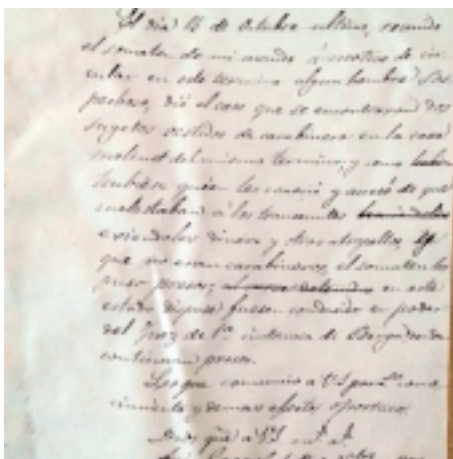 El dia 16 de Octubre ultimo, reunido
el somaten de mi mando á motivo de cir-
cular en este termino algun hombre Sos
pechoso, dió el caso que se encontraron dos
sugetos vestidos de carabinero en la casa
molino del mismo termino, y como
hubiese quien les conoció y avisó de que
molestaban á los transeuntes
exiendoles dinero y otros atropellos, y
que no eran carabineros, el somaten los
puso presos; en este
estado dispuse fuesen conducidos en poder
del Juez de 1ª instancia de Berga donde
continuan presos.
Lo que comunico a VS para su cono
cimiento y demas efectos oportunos.
Dios gue a VS